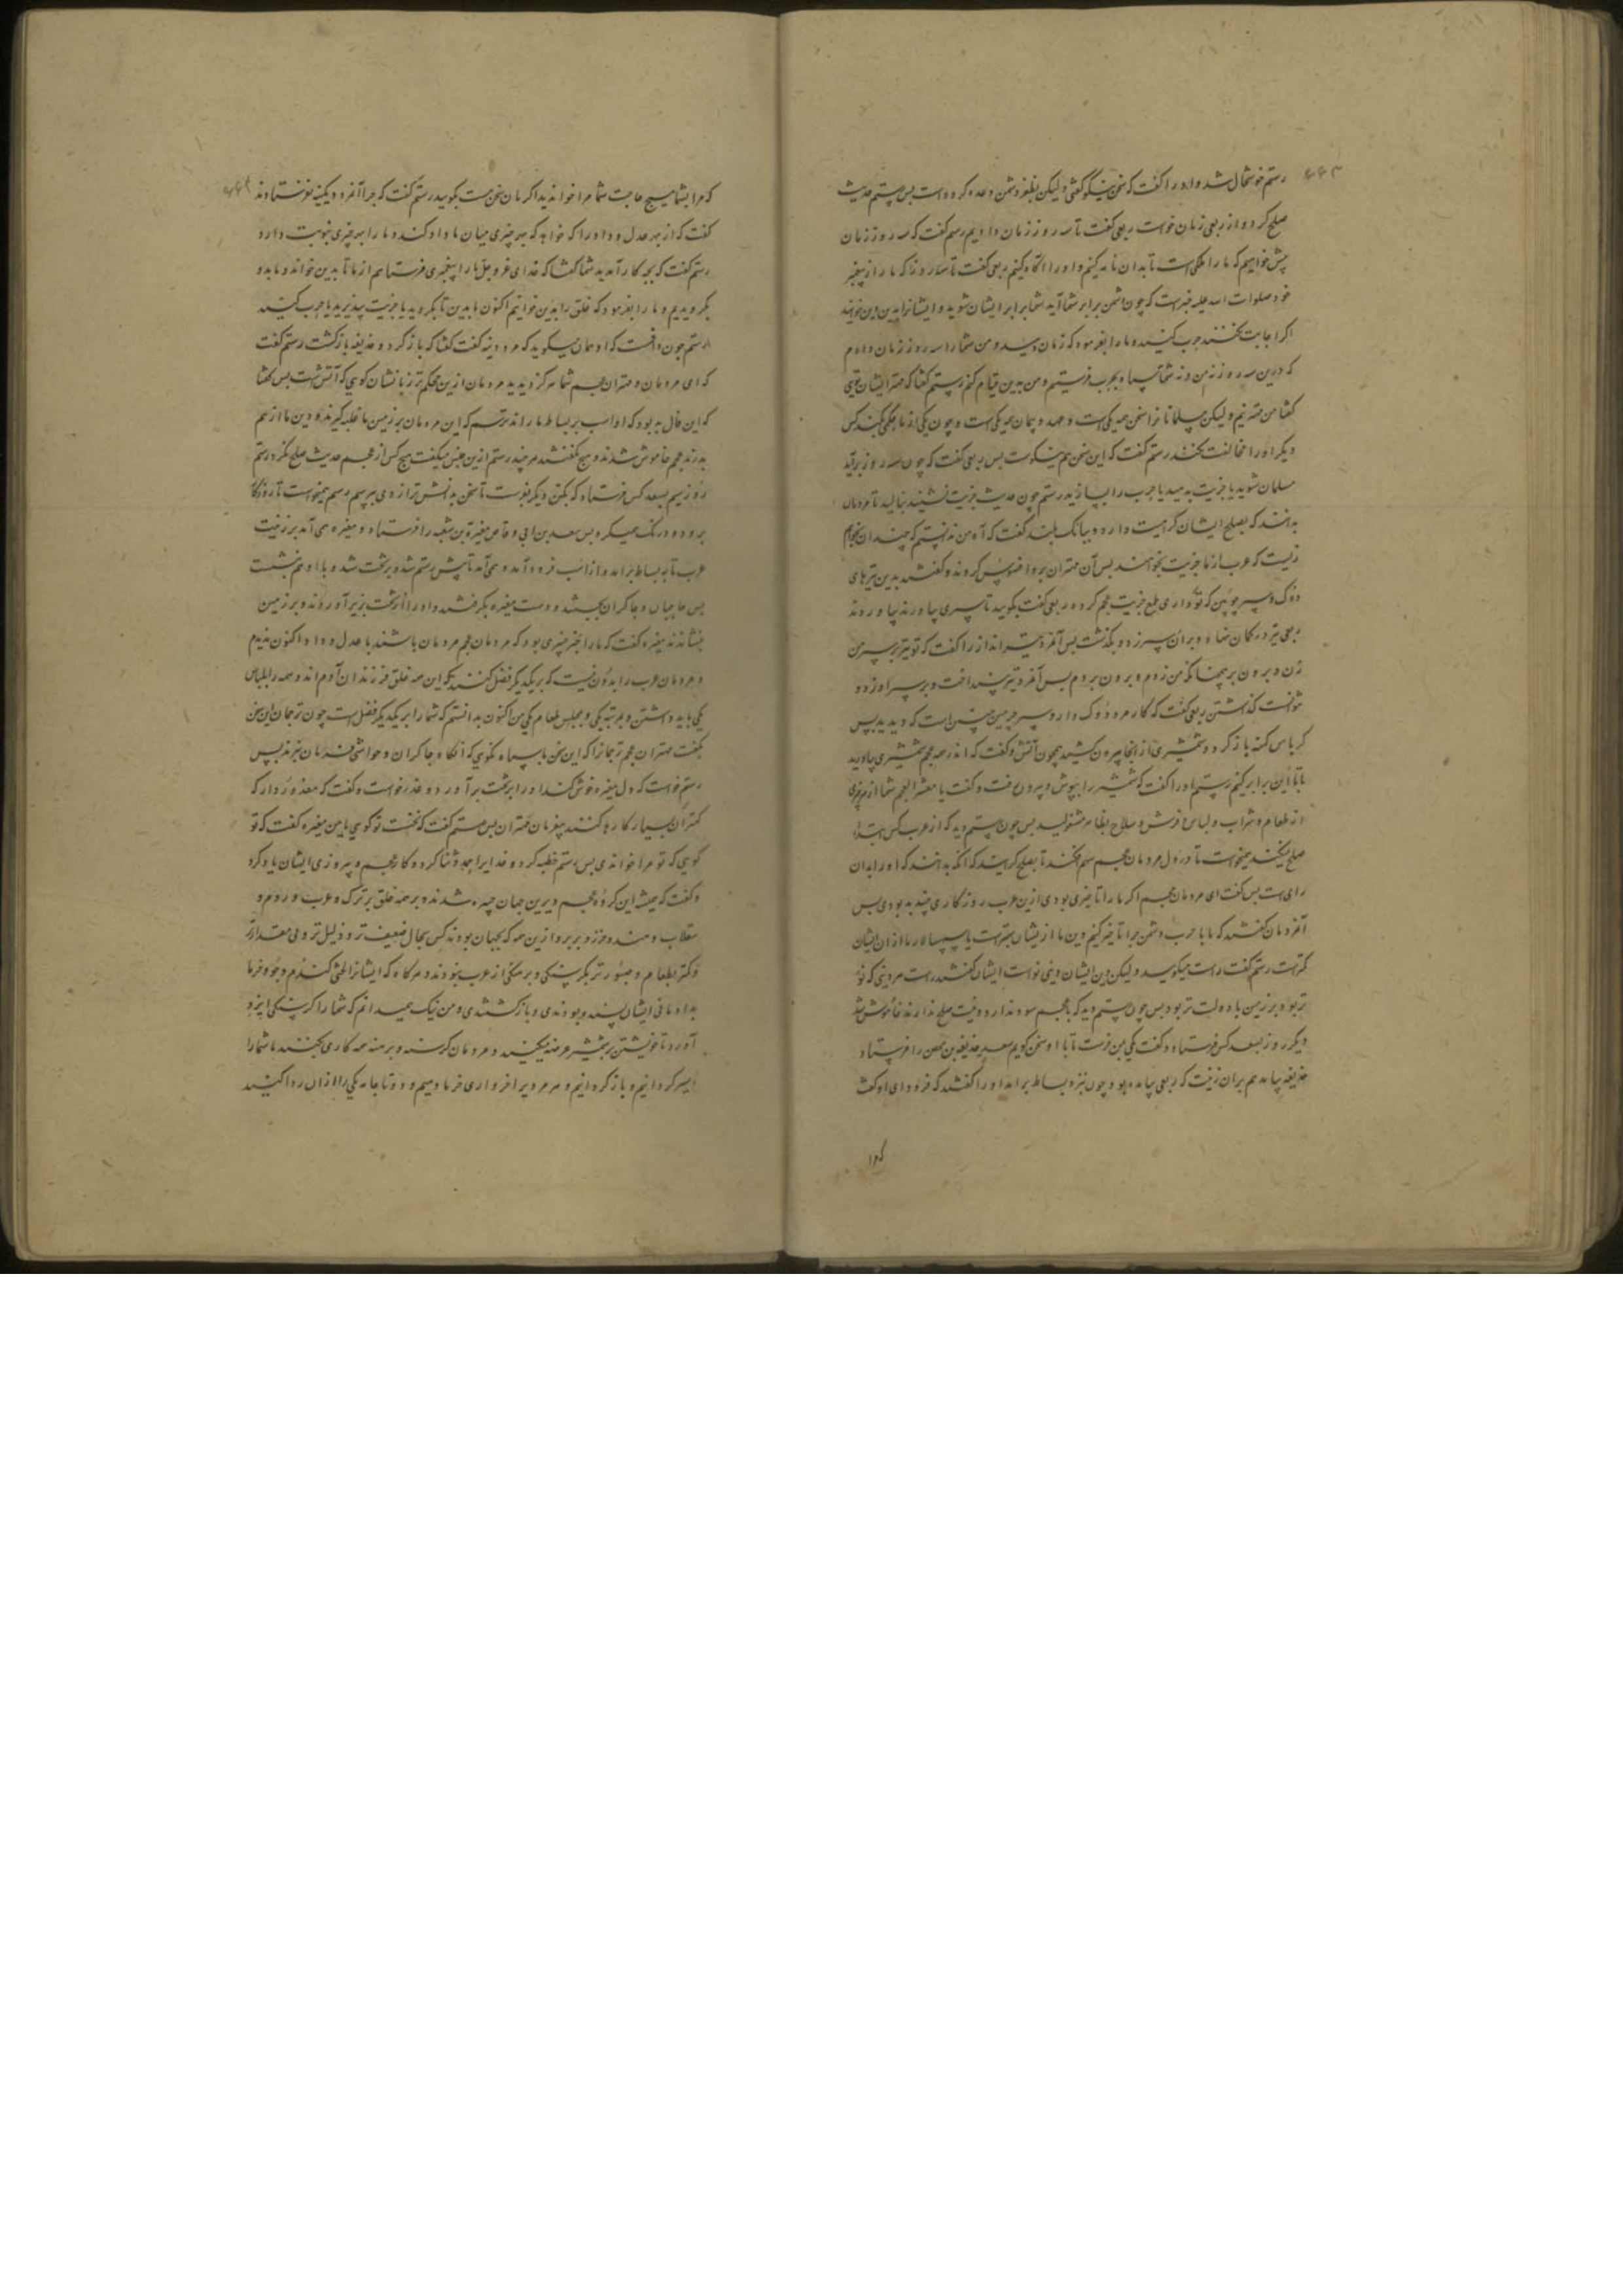 رستم خوشحال شد و او را گفت که سخن نیکو گفتی ولیکن بظفر دشمن وعده کرده است پس رستم حدیث
صلح کرد و از ربعی زمان خواست ربعی گفت تا سه روز زمان دادیم رستم گفت که سه روز زمان
بیش خواهیم که ما را ملکی است تا بدان نامه کنیم و او را آگاه کنیم ربعی گفت تا سه روز که ما را از پیغمبر
خود صلوات الله علیه خبر است که چون دشمن برابر شما آید شما برابر ایشان شوید و ایشانرا بدین دین خوانید
اگر اجابت نکنند حرب کنید و ما را بفرمود که زمان دهید و من شما را سه روز زمان دادم
که درین سه روز نه من و نه شما سپاه بحرب فرستیم و من بدین قیام کنم رستم گفتا که مهتر ایشان تویی
گفتا من مهتر نیم ولیکن مسلمانانرا سخن همه یکی است و عهد و پیمان همه یکی است و چون یکی از ما حکمی کند کس
دیگر او را مخالفت نکند رستم گفت که این سخن هم نیکوست پس ربعی گفت که چون سه روز برآید
مسلمان شوید یا جزیت بدهید یا حرب را بسازید رستم چون حدیث جزیت شنید بنالید تا مردمان
بدانند که بصلح ایشان کراهیت دارد و ببانک بلند گفت که آه من ندانستم که چندان بخواهم
زیست که عرب از ما جزیت بخواهند پس آن مهتران برو افسوس کردند و گفتند بدین تیرهای
دوک و سپر چوبین که تو داری طمع جزیت عجم کرده ربعی گفت بگویید تا سپری بیاورند بیاوردند
ربعی تیر در کمان نهاد و بر آن سپر زد و بگذشت پس آنمرد تیرانداز را گفت که تو تیر بر سپر من
زن و برون بر همچنانکه من زدم و برون بردم پس آنمرد تیر بینداخت و بر سپر او زد و
نتوانست گذاشتن ربعی گفت که کار مرد دوک دار و سپر چرمین چنین است که دیدید پس
کرباس کهنه باز کرد و شمشیری از انجا بیرون کشید همچون آتش و گفت که اندر همه عجم شمشیری بیاورید
تا با این برابر کنیم رستم او را گفت که شمشیر را بپوش و بیرون رفت و گفت یا معشر العجم شما از هر چیزی
از طعام و شراب و لباس و فرش و سلاح بظاهر مشغولید پس چون رستم دید که از عرب کس ابتدا
صلح نمیکند میخواست تا در دل مردمان عجم سهم افکند تا بصلح گرایند که آنکه بدانند که او را بدان
رای است پس گفت ای مردمان عجم اگر ما را تاخیری بودی ازین عرب روزگاری چند به بودی پس
آنمردمان گفتند که ما با حرب دشمن چرا تاخیر کنیم دین ما از ایشان بهتر است یا سپهسالار ما از آن ایشان
کمتر است رستم گفت راست میگویید ولیکن دین ایشان دینی نو است ایشان گفتند راست هر دینی که نو
تر بود بر زمین با دولت تر بود پس چون رستم دید که با عجم سود ندارد و نیت صلح ندارند خاموش شد
دیگر روز بسعد کس فرستاد و گفت یکی بمن فرست تا با او سخن گویم سعد حذیفة بن محصن را فرستاد
حذیفه بیامد هم بران زینت که ربعی بیامده بود چون بنزد بساط برآمد او را گفتند که فرود آی او گفت
که مرا
که مرا بشما هیچ حاجت شما مرا خواندید اکر با من سخن هست بگویید رستم گفت که چرا آنمرد دیگینه نفرستادند
گفت که از بهر عدل و داد را که خواهد که بهر چیزی میان ما داد کند و ما را بهر چیزی بنوبت دارد
رستم گفت که بچه کار آمدید شما گفتا که خدای عز و جل ما را پیغمبری فرستاد هم از ما تا بدین خواند و ما بدو
بگرویدیم و ما را بفرمود که خلق را بدین خوانیم اکنون ما بدین تا بگروید یا جزیت پذیرید یا حرب کنید
رستم چون دانست که او همان میگوید که مرد دینه گفت گفتا که باز گرد و حذیفه باز گشت رستم گفت
که ای مردمان و مهتران عجم شما هرگز دیدید مردمان ازین محکم تر زبانشان گویی که آتش است پس گفتا
که این فال بد بود که او اسب بر بساط ما راند ترسم که این مردمان بر زمین ما غلبه گیرند و دین ما از هم
بدرند عجم خاموش شدند و هیچ نگفتند هر چند رستم ازین جنس میگفت هیچ کس از عجم حدیث صلح نکرد رستم
روز سیم بسعد کس فرستاد که یکتن دیگر بفرست تا سخن بدانش تر از وی بپرسم رستم همیخواست تا روزگار
برود و درنگ همیکرد پس سعد بن ابی وقاص مغیرة بن شعبه را فرستاد و مغیره همی آمد بر زینت
عرب تا به بساط برآمد و از اسب فرود آمد و همی آمد تا پیش رستم شد و بر تخت شد و با او هم بنشست
پس حاجبان و چاکران بجستند و دست مغیره بگرفتند و او را از تخت بزیر آوردند و بر زمین
بنشاندند مغیره گفت که ما را خبر چیزی بود که مردمان عجم مردمان باشند با عدل و داد اکنون ندیدم
و مردمان عرب را بدون نیست که بر یکدیگر فضل کنند که این همه خلق فرزندان آدم اند و همه را بلباس
یکی باید داشتن و بمرتبه یکی و بمجلس طعام یکی من اکنون بدانستم که شما را بر یکدیگر فضل است چون ترجمان این سخن
بگفت مهتران عجم ترجمانرا که این سخن با سپاه نگویی که آنگاه چاکران و حواشی فرمان نبرند پس
رستم خواست که دل مغیره خوش کند او را بر تخت برآورد و عذر خواست و گفت که معذور دار که
کهتران بسیار کارها کنند بیفرمان مهتران پس رستم گفت که نخست تو گویی یا من مغیره گفت که تو
گویی که تو مرا خواندی پس رستم خطبه کرد و خدایرا حمد و ثنا کرد و کار عجم و پیروزی ایشان یاد کرد
و گفت که همیشه این گروه عجم درین جهان چیره شدند و بر همه خلق بر ترک و عرب و روم و
سقلاب و هند و خزر و بربر و ازین همه که بجهان بودند کس بحال ضعیف تر و ذلیل تر و بی مقدارتر
و کمتر بطعام و صبورتر بگرسنگی و برهنگی از عرب نبودند و هرگاه که ایشانرا لختی گندم و جو و خرما
بدادمانی ایشان پسنده بودندی و باز گشتندی و من نیک همیدانم که شما را گرسنگی اینرو
آورد تا خویشتن بر شمشیر عرضه میکنید و مردمان گرسنه و برهنه همه کاری بکنند ما شما را
سیر گردانیم و باز گردانیم و هر مردیرا خرواری خرما دهیم و دو تا جامه یکی را ازان ردا کنید